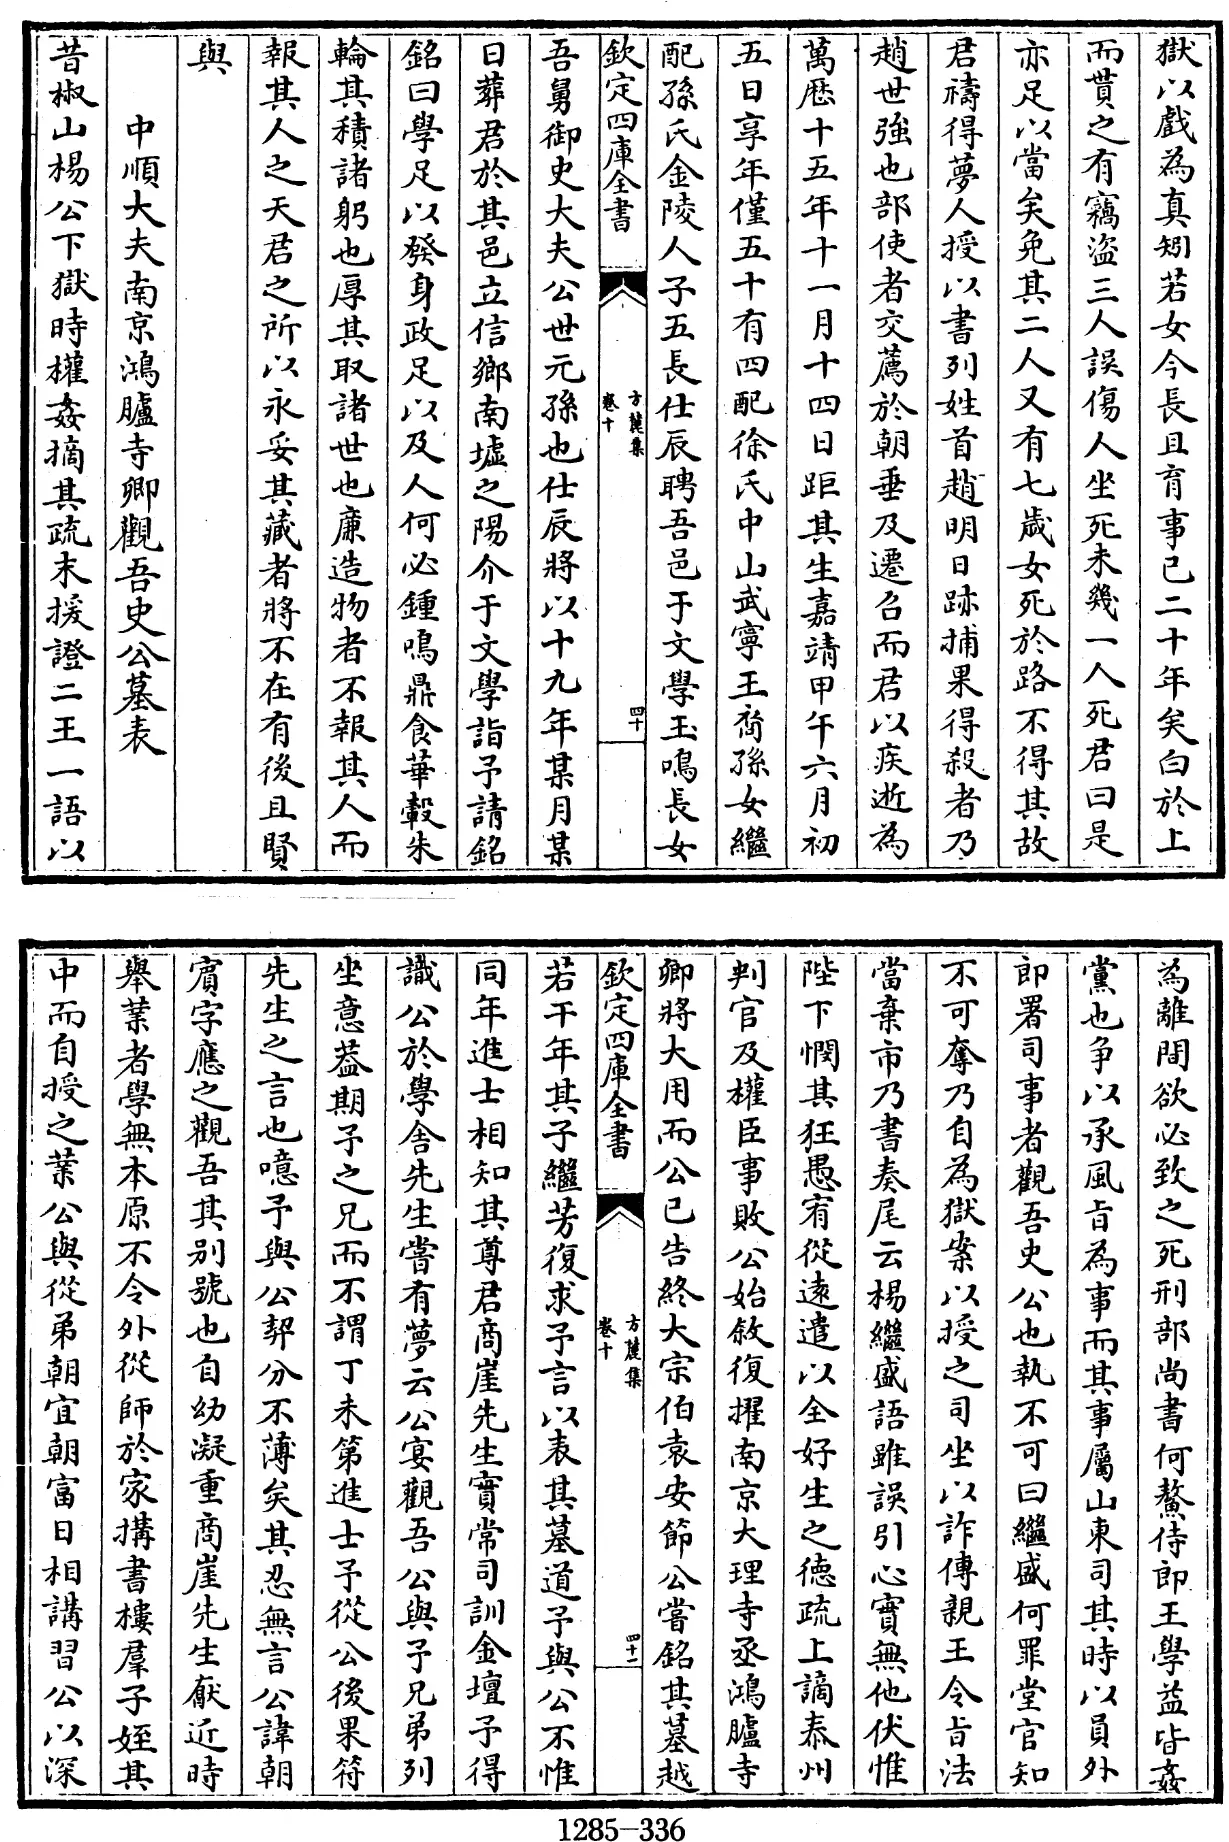 獄以戲為真矧若女今長且育事已二十年矣白於上
而貰之有竊盜三人誤傷人坐死未幾一人死君曰是
亦足以當矣免其二人又有七歲女死於路不得其故
君禱得夢人授以書列姓首趙明日跡捕果得殺者乃
趙世強也部使者交薦於朝垂及遷召而君以疾逝為
萬厯十五年十一月十四日距其生嘉靖甲午六月初
五日享年僅五十有四配徐氏中山武寧王裔孫女繼
配孫氏金陵人子五長仕辰聘吾邑于文學玉鳴長女
欽定四庫全書
方麓集
卷十
四十
吾舅御史大夫公世元孫也仕辰將以十九年某月某
日葬君於其邑立信鄉南墟之陽介于文學詣予請銘
銘曰學足以發身政足以及人何必鍾鳴鼎食華轂朱
輪其積諸躬也厚其取諸世也廉造物者不報其人而
報其人之天君之所以永妥其藏者將不在有後且賢
與
中順大夫南京鴻臚寺卿觀吾史公墓表
昔椒山楊公下獄時權姦摘其疏末援證二王一語以
為離間欲必致之死刑部尚書何鰲侍郎王學益皆姦
黨也争以承風旨為事而其事屬山東司其時以員外
郎署司事者觀吾史公也執不可曰繼盛何罪堂官知
不可奪乃自為獄案以授之司坐以詐傳親王令旨法
當棄市乃書奏尾云楊繼盛語雖誤引心實無他伏惟
陛下憫其狂愚宥從逺遣以全好生之德疏上謫泰州
判官及權臣事敗公始敘復擢南京大理寺丞鴻臚寺
卿將大用而公已告終大宗伯袁安節公嘗銘其墓越
欽定四庫全書
方麓集
卷十
四十一
若干年其子繼芳復求予言以表其墓道予與公不惟
同年進士相知其尊君商崖先生實常司訓金壇予得
識公於學舍先生嘗有夢云公宴觀吾公與予兄弟列
坐意葢期予之兄而不謂丁未第進士予從公後果符
先生之言也噫予與公契分不薄矣其忍無言公諱朝
賓字應之觀吾其别號也自幼凝重商崖先生厭近時
舉業者學無本原不令外從師於家搆書樓羣子姪其
中而自授之業公與從弟朝宜朝富日相講習公以深
1285-336